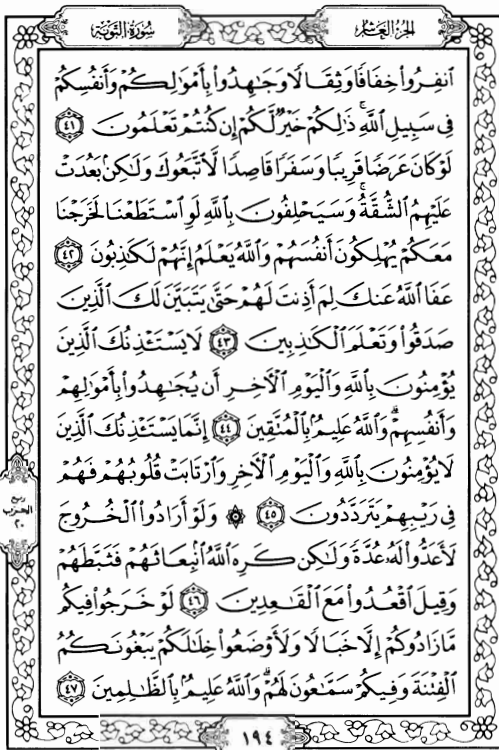 سُورَةُ التَّوْبَةِ
الجُزْءُ العَاشِرُ
ٱنفِرُوا۟ خِفَافًا وَثِقَالًا وَجَٰهِدُوا۟ بِأَمْوَٰلِكُمْ وَأَنفُسِكُمْ
فِى سَبِيلِ ٱللَّهِ ۚ ذَٰلِكُمْ خَيْرٌ لَّكُمْ إِن كُنتُمْ تَعْلَمُونَ ٤١
لَوْ كَانَ عَرَضًا قَرِيبًا وَسَفَرًا قَاصِدًا لَّٱتَّبَعُوكَ وَلَٰكِنۢ بَعُدَتْ
عَلَيْهِمُ ٱلشُّقَّةُ ۚ وَسَيَحْلِفُونَ بِٱللَّهِ لَوِ ٱسْتَطَعْنَا لَخَرَجْنَا
مَعَكُمْ يُهْلِكُونَ أَنفُسَهُمْ وَٱللَّهُ يَعْلَمُ إِنَّهُمْ لَكَٰذِبُونَ ٤٢
عَفَا ٱللَّهُ عَنكَ لِمَ أَذِنتَ لَهُمْ حَتَّىٰ يَتَبَيَّنَ لَكَ ٱلَّذِينَ
صَدَقُوا۟ وَتَعْلَمَ ٱلْكَٰذِبِينَ ٤٣ لَا يَسْتَـْٔذِنُكَ ٱلَّذِينَ
يُؤْمِنُونَ بِٱللَّهِ وَٱلْيَوْمِ ٱلْـَٔاخِرِ أَن يُجَٰهِدُوا۟ بِأَمْوَٰلِهِمْ
وَأَنفُسِهِمْ ۗ وَٱللَّهُ عَلِيمٌۢ بِٱلْمُتَّقِينَ ٤٤ إِنَّمَا يَسْتَـْٔذِنُكَ ٱلَّذِينَ
لَا يُؤْمِنُونَ بِٱللَّهِ وَٱلْيَوْمِ ٱلْـَٔاخِرِ وَٱرْتَابَتْ قُلُوبُهُمْ فَهُمْ
فِى رَيْبِهِمْ يَتَرَدَّدُونَ ٤٥ ۞ وَلَوْ أَرَادُوا۟ ٱلْخُرُوجَ
لَأَعَدُّوا۟ لَهُۥ عُدَّةً وَلَٰكِن كَرِهَ ٱللَّهُ ٱنۢبِعَاثَهُمْ فَثَبَّطَهُمْ
وَقِيلَ ٱقْعُدُوا۟ مَعَ ٱلْقَٰعِدِينَ ٤٦ لَوْ خَرَجُوا۟ فِيكُم
مَّا زَادُوكُمْ إِلَّا خَبَالًا وَلَأَوْضَعُوا۟ خِلَٰلَكُمْ يَبْغُونَكُمُ
ٱلْفِتْنَةَ وَفِيكُمْ سَمَّٰعُونَ لَهُمْ ۗ وَٱللَّهُ عَلِيمٌۢ بِٱلظَّٰلِمِينَ ٤٧
ربع
الحزب
٢٠
١٩٤